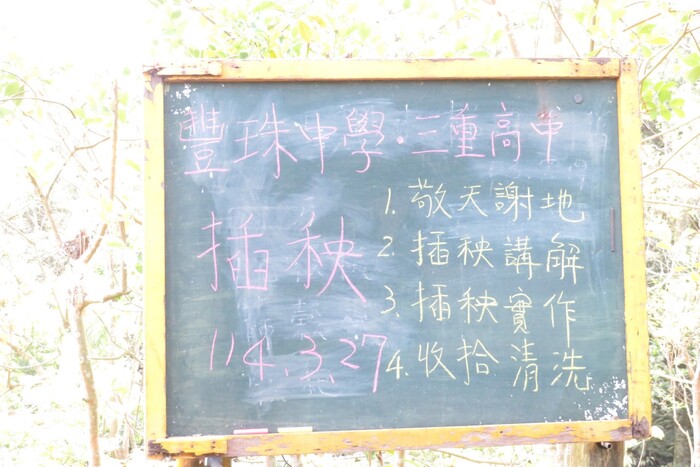 豐珠中學·三重高中
插秧
114.3.27
1. 敬天謝地
2. 插秧講解
3. 插秧實作
4. 收拾清洗